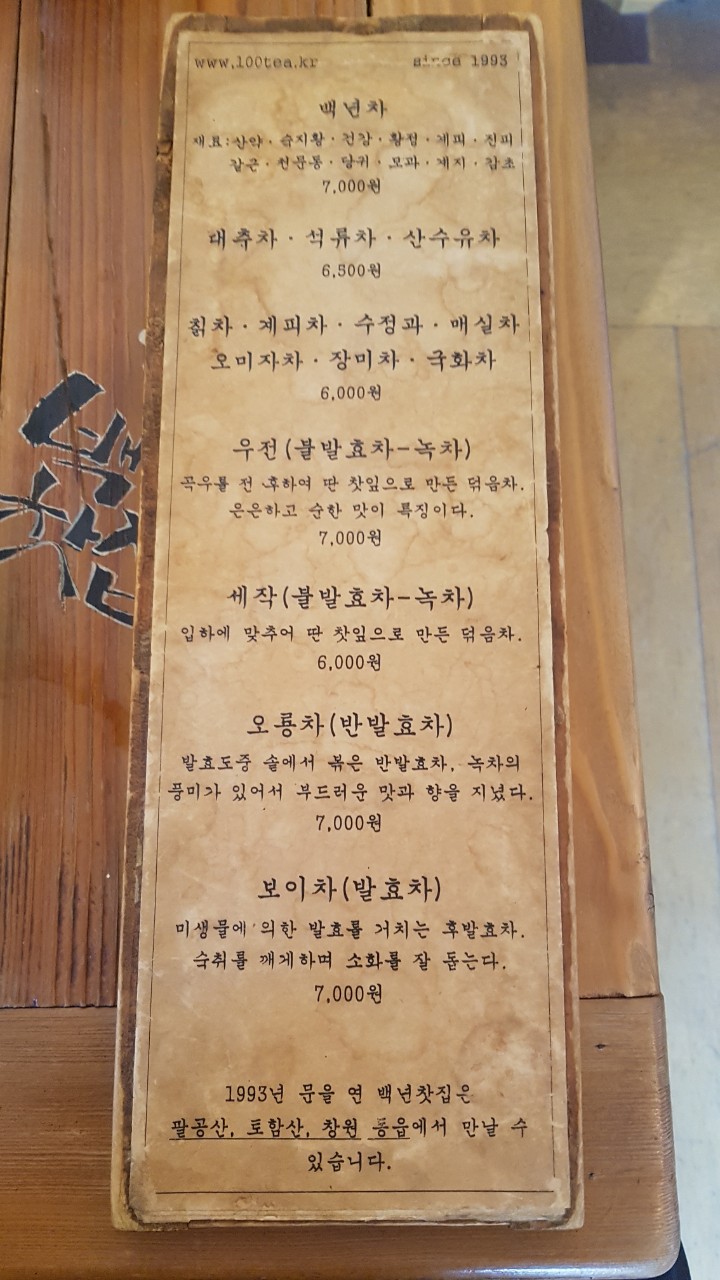 www.100tea.kr since 1993
백년차
재료:산약·숙지황·건강·황정·계피·진피
갈근·천문동·당귀·모과·계지·감초
7,000원
대추차·석류차·산수유차
6,500원
칡차·계피차·수정과·매실차
오미자차·장미차·국화차
6,000원
우전(불발효차-녹차)
곡우를 전 후하여 딴 찻잎으로 만든 덖음차.
은은하고 순한 맛이 특징이다.
7,000원
세작(불발효차-녹차)
입하에 맞추어 딴 찻잎으로 만든 덖음차.
6,000원
오룡차(반발효차)
발효도중 솥에서 볶은 반발효차, 녹차의
풍미가 있어서 부드러운 맛과 향을 지녔다.
7,000원
보이차(발효차)
미생물에 의한 발효를 거치는 후발효차.
숙취를 깨게하며 소화를 잘 돕는다.
7,000원
1993년 문을 연 백년찻집은
팔공산, 토함산, 창원 동읍에서 만날 수
있습니다.
백년
찻집